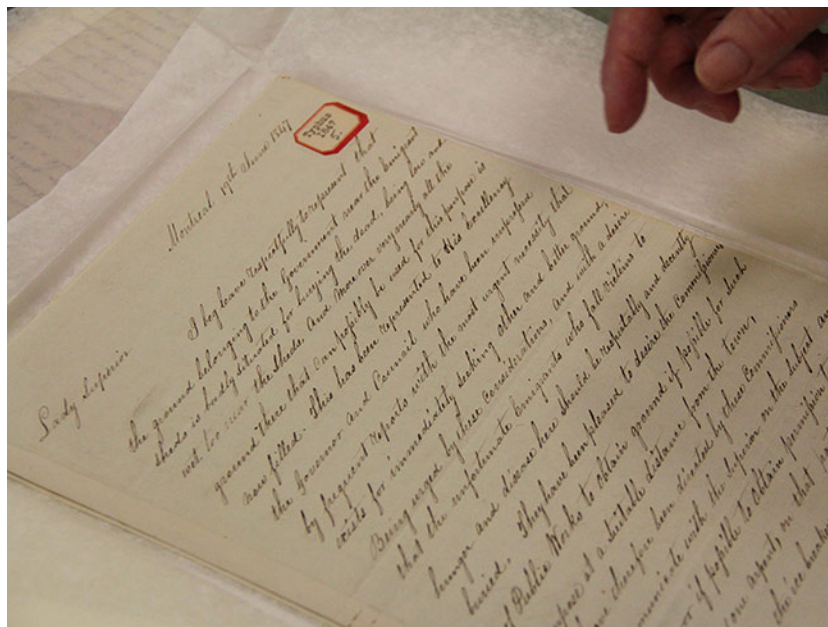 Typhus
1847
Montreal, 17th June 1847
Lady Superior
I beg leave respectfully to represent that
the ground belonging to the Government near the Emigrant
sheds is badly situated for burying the dead, being low and
wet too near the sheds, and moreover very nearly all the
ground there that can possibly be used for this purpose is
now filled. This has been represented to this Excellency
the Governor and Council who have been impressed
by frequent reports with the most urgent necessity that
exists for immediately seeking other and better ground,
Being urged by these considerations, and with a desire
that the unfortunate Emigrants who fall victims to
hunger and disease here should be respectably and decently
buried. They have been pleased to desire the Commissioners
of Public Works to obtain ground if possible for such
at a suitable distance from the town,
therefore been directed by these Commissioners
with the Superior on the subject
if possible to obtain permission
on that
the ice